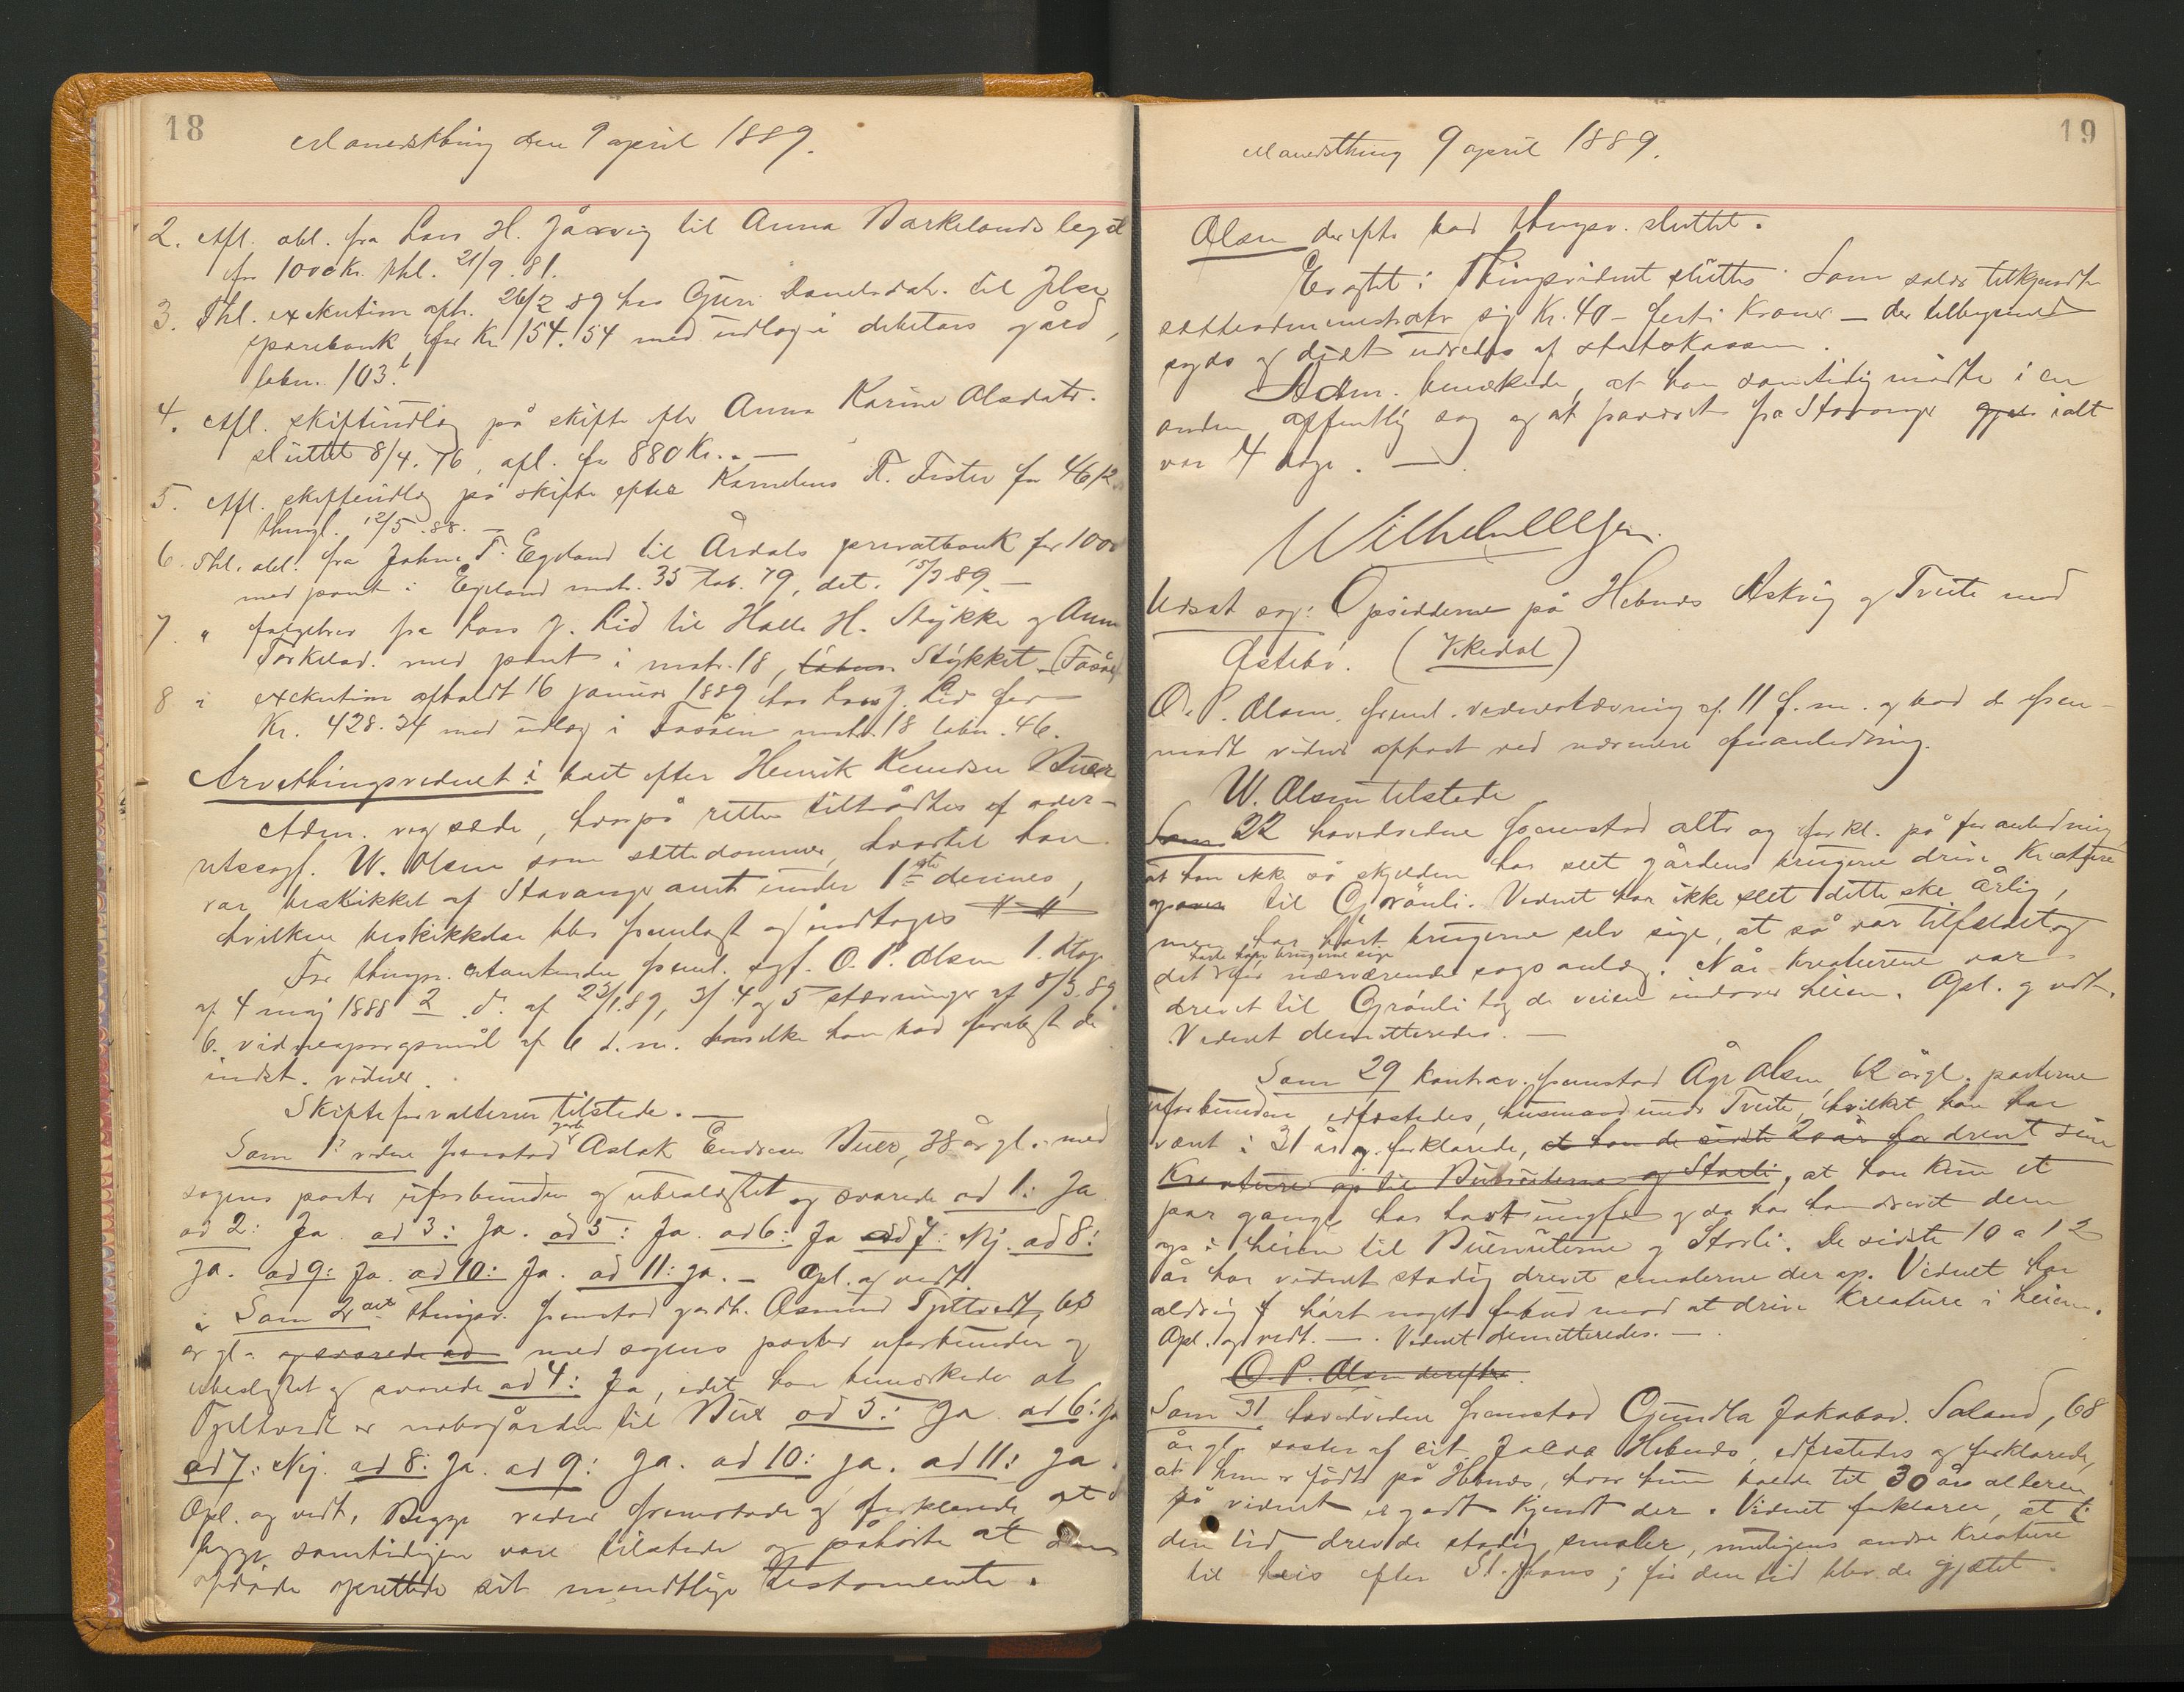 18
Manedsthing den 9 april 1889.
2. Afl. obl. fra Lars H. Jåsvig til Anna Barkelands legat
for 1000 Kr. thl. 21/9.81.
3. Thl. exekution afh. 26/2 89 hos Guri Danielsdat. til Jelse
sparebank for Kr. 154.54 med udlæg i debitors gård,
løbn. 103.b
4. Afl. skifteudlæg på skifte efter Anna Karine Olsdatr.
sluttet 8/4.76, afl. for 880 Kr. . —
5. Afl. skifteudlæg på skifte efter Kornelius T. Fister for
thingl. 12/5.88. —
6. Thl. obl. fra Johan T. Egeland til Årdals privatbank for 1000
med pant i Egeland matr. 35 løb. 79, dat. 15/3 89. —
7. " følgebrev fra Lars J. Lid til Halle H. Stykke og Anna
Torkelsd. med pant i matr. 18, løbnr. Stykket (Fosåen)
8 " exekution afholdt 16 januar 1889 hos Lars J. Lid for
Kr. 428.34 med udlæg i Fosåen matr. 18 løbn. 46.
Arvethingsvidnet i boet efter Henrik Knudsen Buer
Adm. veg sæde, hvorpå retten tiltrådtes af over-
retssagf. W. Olsen som sættedommer, hvortil han
var beskikket af Stavanger amt under 1ste dennes,
hvilken beskikkelse blev fremlagt og indtages # #
For thingsv. rekvirenten freml. sgf. O. P. Olsen 1. Ktag.
af 4 maj 1888 2 d. af 23/1.89, 3/ 4 og 5 stævninger af 8/3.89
6. vidnespørgsmål af 6 d. m. hvilke han bad forelagt de
indst. vidner.
Skifteforvalteren tilstede. —
Som 1ste vidne fremstod gårdb. Aslak Endresen Buer, 38 år gl. med
sagens parter uforbunden og ubeslægtet og svarede ad 1: Ja
ad 2: Ja. ad 3: Ja. ad 5: Ja. ad 6: Ja ad 7: Nej. ad 8:
Ja. ad 9: Ja ad 10: Ja. ad 11: Ja. — Opl. og vedt.
Som 2det thingsv. fremstod gårdb. Asmund Tjeltvedt, 63
år gl. og svarede ad med sagens parter uforbunden og
ubeslægtet og svarede ad 4: Ja, idet han bemærkede at
Tjeltvedt er nabogården til Buer ad 5: Ja ad 6: Ja
ad 7: Nej. ad 8: Ja. ad 9: Ja. ad 10: Ja. ad 11: Ja.
Opl. og vedt. Begge vidner fremstode og forklarede at
begge samtidigen vare tilstede og påhørte at den
afdøde oprettede sit mundtlige testamente.
19
Manedsthing 9 april 1889.
Olsen derefter bad thingsv. sluttet.
Eragtet: Thingsvidnet sluttes. Som salær tilkjendte
sætteadministrator sig Kr. 40 — førti Kroner — der tilligemed
og diæt udredes af statskassen.
Adm. bemærkede, at han samtidig mødte i en
anden offentlig sag og at fraværet fra Stavanger ialt
var 4 dage. —
Wilhelm Olsen.
Udsat sag: Opsidderne på Hebnes Askvig og Tveite mod
Østebø. (Vikedal)
O. P. Olsen freml. vidnestævning af 11 f. m. og bad de frem-
mødte vidner afhørt ved nærmere foranledning.
W. Olsen tilstede
Som 22 hovedvidne fremstod atter og forkl. på foranledning
at han ikke så skjelden har seet gårdens brugere drive Kreature
til Grönli. Vidnet har ikke seet dette ske årlig,
men har hørt brugerne selv sige, at så var tilfældet og
det før nærværende sags anlæg. Når kreaturene var
drevet til Grönli tog de veien indover heien. Opl. og vedt.
Vidnet demitteredes. —
Som 29 kontrav. fremstod Åge Olsen, 62 år gl. parterne
uforbunden edfæstedes, husmand under Tveite, hvilket han har
været i 31 år og forklarede, at han de sidste 20 år har drevet sine
Kreature op til Buernuterne og Storli, at han kun et
par gange har havt ungfæ og da har han drevet dem
op i heien til Buernuterne og Storli. De sidste 10 a 12
år har vidnet stadig drevet smalerne der op. Vidnet har
aldrig hørt noget forbud mod at drive Kreature i heien.
Opl. og vedt. — . Vidnet demitteredes. — .
O. P. Olsen derefter.
Som 31 hovedvidne fremstod Gundla Jakobsd. Saland, 68
år gl. søster af cit. Jalva Hebnes, edfæstedes og forklarede,
at hun er født på Hebnes, hvor hun boede til 30 års alderen
så vidnet er godt kjendt der. Vidnet forklarer, at i
den tid drevde stadig smaler, muligens andre Kreature
til heis efter St. Hans; før den tid blev de gjætet